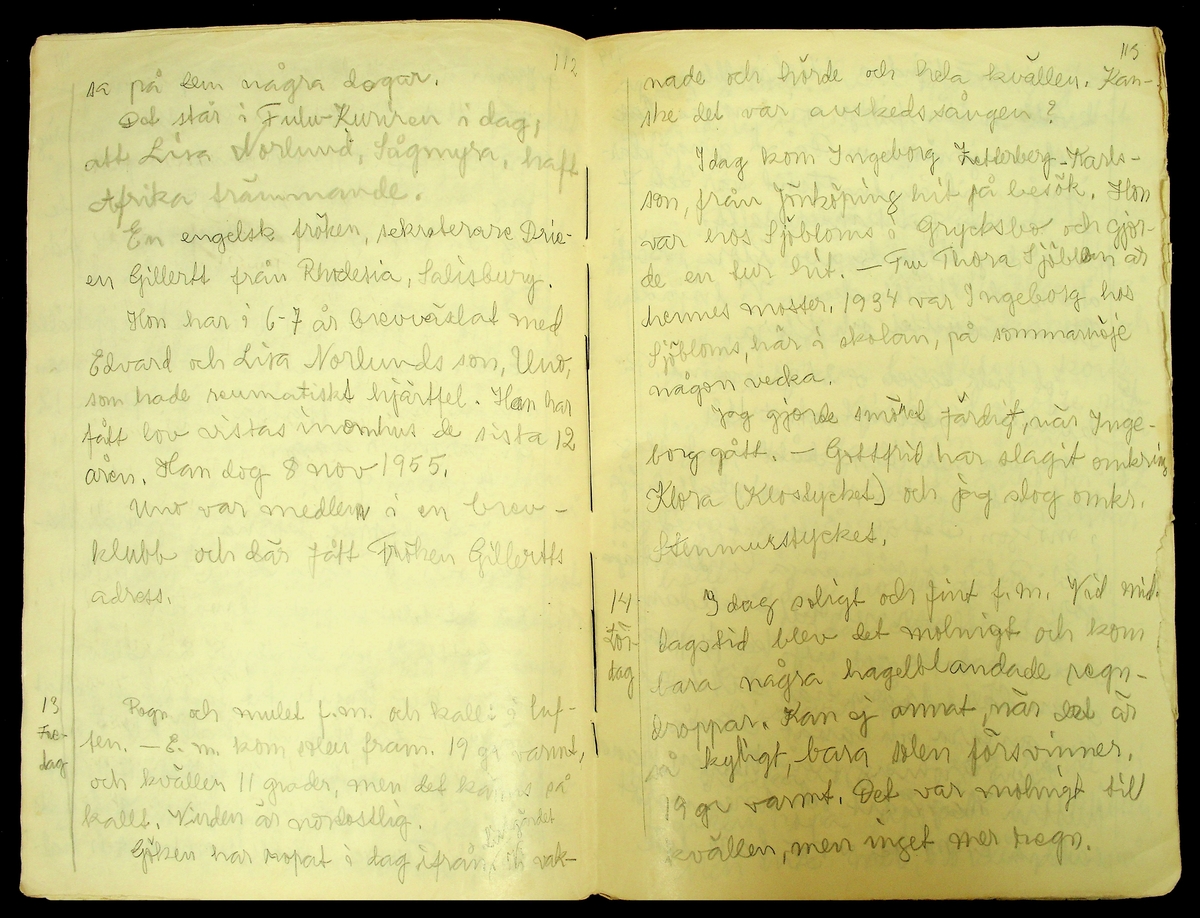 112
sa på lem några dagar.
Det står i Falu-Kuriren i dag,
att Lisa Norlund, Sågmyra, haft
Afrika främmande.
En engelsk fröken, sekreterare Drie-
en Gillertt från Rhodesia, Salisburg.
Hon har i 6-7 år brevväslat med
Edvard och Lisa Norlunds son, Uno,
som hade reumatiskt hjärtfel. Han har
fått lov vistas inomhus de sista 12
åren. Han dog 8 nov 1955.
Uno var medlem i en brev-
klubb och där fått Fröken Gillertts
adress.
13
Fre-
dag
Regn och mulet f.m. och kallt i luf-
ten. — E. m. kom solen fram. 19 gr varmt,
och kvällen 11 grader, men det kännes på
kallt. Vinden är nordostlig.
gärdet
Göken har ropat i dag ifrån vak-
113
nade och hörde och hela kvällen. Kan-
ske det var avskedssången?
Idag kom Ingeborg Zetterberg-Karls-
son, från Jönköping hit på besök. Hon
var hos Sjöbloms i Grycksbo och gjor-
de en tur hit. — Fru Thora Sjöblom är
hennes moster. 1934 var Ingeborg hos
Sjöbloms, här i skolan, på sommarnöje
någon vecka.
Jag gjorde smöret färdigt, när Inge-
borg gått. — Gottfrid har slagit omkring
Klora (Klostycket) och jag slog omkr.
Stenmurstycket.
14
Lör-
dag
Idag soligt och fint f.m. Vid mid-
dagstid blev det molnigt och kom
bara några hagelblandade regn-
droppar. Kan ej annat, när det är
så kyligt, bara solen försvinner.
19 gr varmt. Det var molnigt till
kvällen, men inget mer regn.